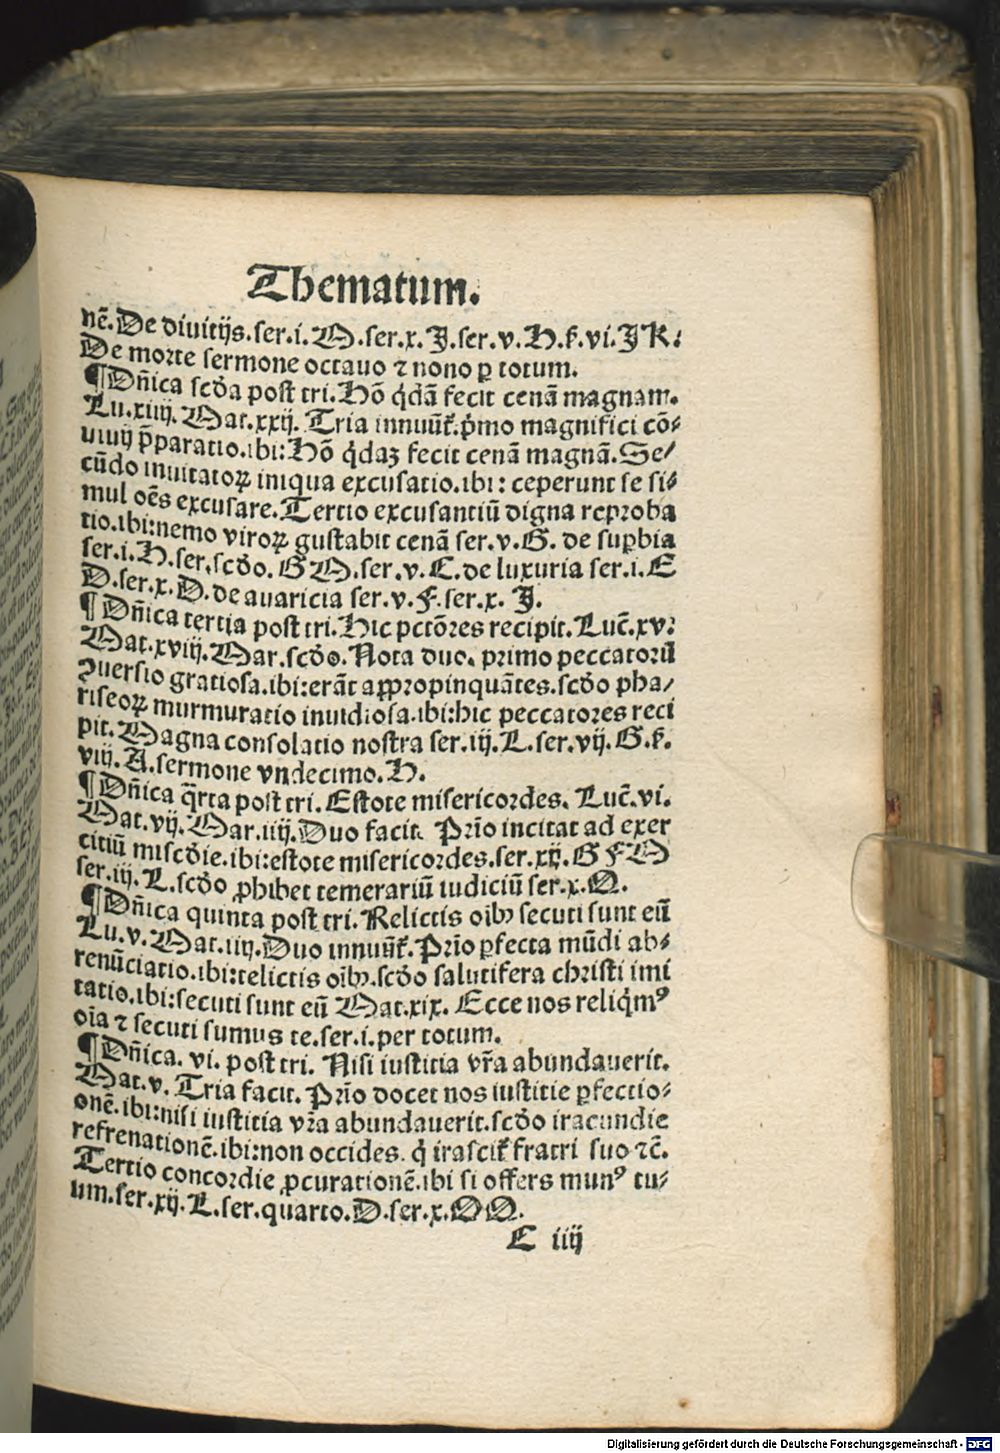 Thematum.
nē. De diuitijs. ser. i. M. ser. x. J. ser. v. H. ẜ. vi. J K.
De morte sermone octauo ⁊ nono ꝑ totum.
¶ Dn̄ica scd̓a post tri. Hō q̓dā fecit cenā magnam.
Lu. xiiij. Mat. xxij. Tria innuūt̉. p̓mo magnifici cō⸗
uiuij p̄paratio. ibi: Hō q̓daꝫ fecit cenā magnā. Se⸗
cūdo inuitatoꝝ iniqua excusatio. ibi: ceperunt se si⸗
mul oēs excusare. Tertio excusantiū digna reproba
tio. ibi: nemo viroꝝ gustabit cenā ser. v. G. de suꝑbia
ser. i. H. ser. scd̓o. G M. ser. v. C. de luxuria ser. i. E
D. ser. x. D. de auaricia ser. v. F. ser. x. J.
¶ Dn̄ica tertia post tri. Hic pctōres recipit. Luc̄. xv.
Mat. xviij. Mar. scd̓o. Nota duo. primo peccatorū
ꝯuersio gratiosa. ibi: erāt aꝓpropinquātes. scd̓o pha⸗
riseoꝝ murmuratio inuidiosa. ibi: hic peccatores reci
pit. Magna consolatio nostra ser. iij. L. ser. vij. G. ẜ.
viij. A. sermone vndecimo. H.
¶ Dn̄ica q̄rta post tri. Estote misericordes. Luc̄. vi.
Mat. vij. Mar. iiij. Duo facit. Prīo incitat ad exer
citiū misc̓die. ibi: estote misericordes. ser. xij. G F M
ser. iij. L. scd̓o ꝓhibet temerariū iudiciū ser. x. N.
¶ Dn̄ica quinta post tri. Relictis oībꝰ secuti sunt eū
Lu. v. Mat. iiij. Duo innuūt̉. Prīo ꝑfecta mūdi ab⸗
renūciatio. ibi: relictis oībꝰ. scd̓o salutifera christi imi
tatio. ibi: secuti sunt eū Mat. xix. Ecce nos reliq̓mꝰ
oīa ⁊ secuti sumus te. ser. i. per totum.
¶ Dn̄ica. vi. post tri. Nisi iustitia vr̄a abundauerit.
Mat. v. Tria facit. Prīo docet nos iustitie ꝑfectio⸗
onē. ibi: nisi iustitia vr̄a abundauerit. scd̓o iracundie
refrenationē. ibi: non occides. q̓ irascit̉ fratri suo ⁊c̄.
Tertio concordie ꝓcurationē. ibi si offers munꝰ tu⸗
um. ser. xij. L. ser. quarto. D. ser. x. M N.
C iiij
Digitalisierung gefördert durch die Deutsche Forschungsgemeinschaft - DFG